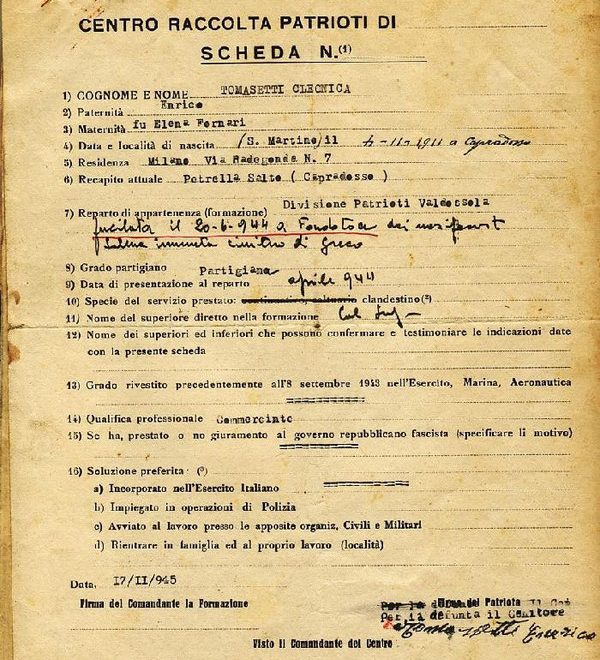 CENTRO RACCOLTA PATRIOTI DI
SCHEDA N.(1)
1) COGNOME E NOME TOMASETTI CLEONICA
2) Paternità Enrico
3) Maternità fu Elena Fornari
4) Data e località di nascita (S. Martino) il 4-11-1911 a Capradosso
5) Residenza Milano Via Radegonda N. 7
6) Recapito attuale Petrella Salto ( Capradosso )
7) Reparto di appartenenza (formazione) Divisione Patrioti Valdossola
fucilata il 20-6-1944 a Fondotoce dai nazifascisti
8) Grado partigiano Partigiana
9) Data di presentazione al reparto aprile 944
10) Specie del servizio prestato: clandestino(2)
11) Nome del superiore diretto nella formazione
12) Nome dei superiori ed inferiori che possono confermare e testimoniare le indicazioni date
con la presente scheda
13) Grado rivestito precedentemente all'8 settembre 1943 nell'Esercito, Marina, Aeronautica
14) Qualifica professionale Commercinte
15) Se ha, prestato o no giuramento al governo repubblicano fascista (specificare li motivo)
16) Soluzione preferita (3)
a) Incorporato nell'Esercito Italiano
b) Impiegato in operazioni di Polizia
c) Avviato al lavoro presso le apposite organiz. Civili e Militari
d) Rientrare in famiglia ed al proprio lavoro (località)
Data, 17/11/945
Firma del Comandante la Formazione
Firma del Patriota
Per la defunta il Genitore
Tomassetti Enrico
Visto il Comandante del Centro